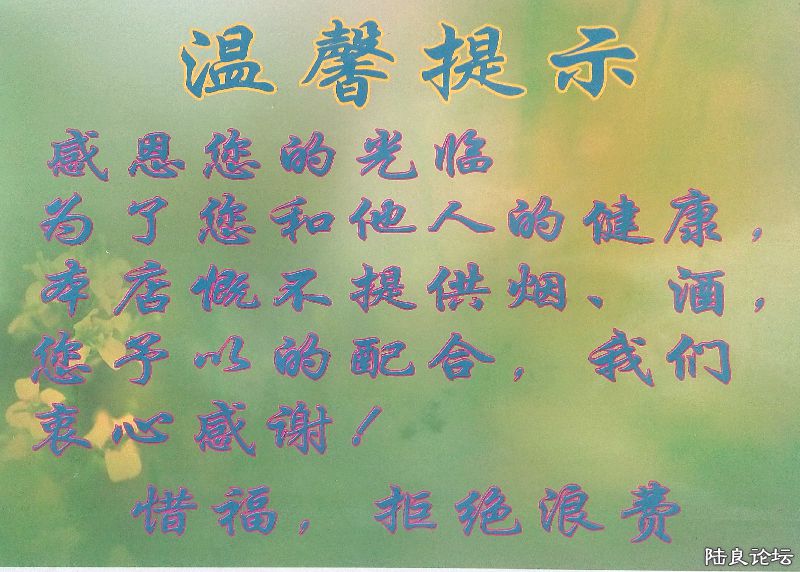 温馨提示
感恩您的光临
为了您和他人的健康，
本店慨不提供烟、酒，
您予以的配合，我们
衷心感谢！
惜福，拒绝浪费
陆良论坛